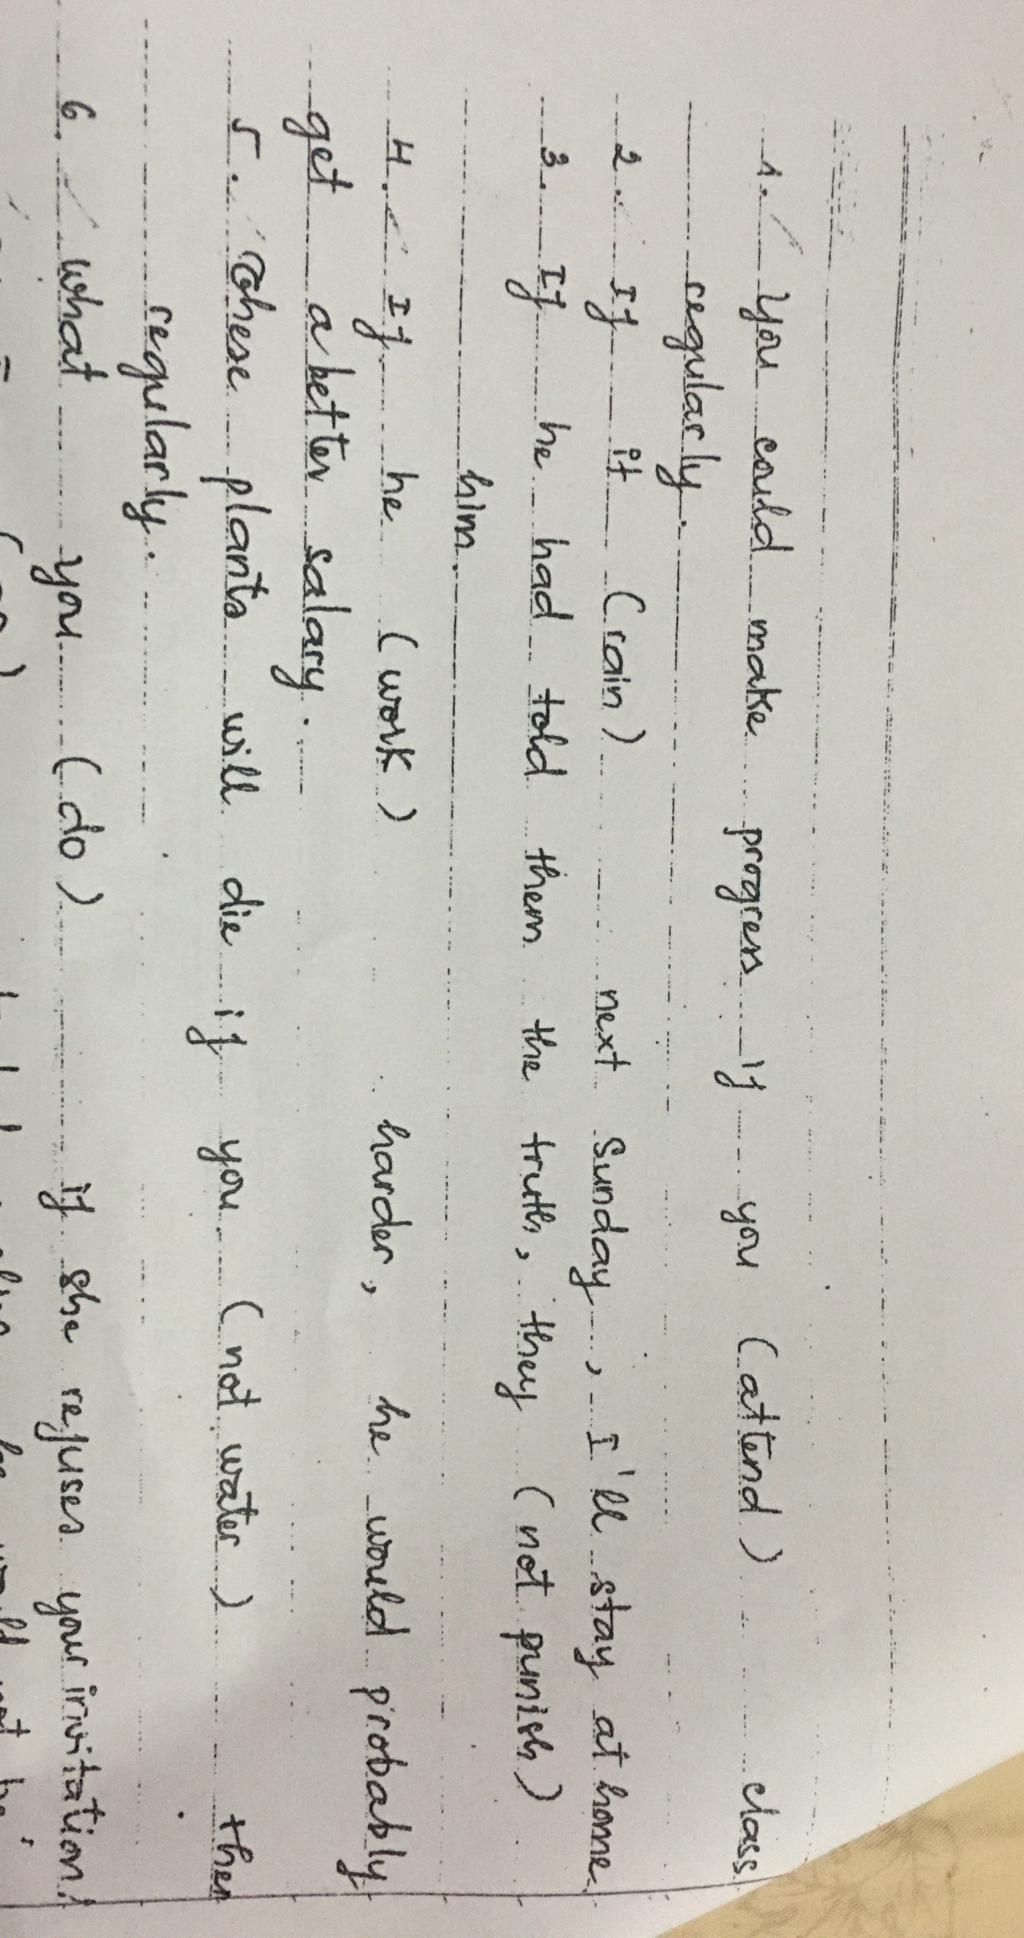 1. You could make progress if you (attend) class
regularly.
2. If it (rain) next Sunday, I'll stay at home.
3. If he had told them the truth, they (not punish)
him.
4. If he (work) harder, he would probably
get a better salary.
5. These plants will die if you (not water) them
regularly.
6. what you (do) if she refuses your invitation?